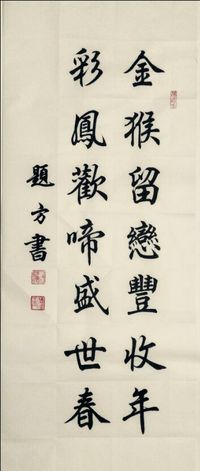 金猴留戀豐收年
彩鳳歡啼盛世春
題方書